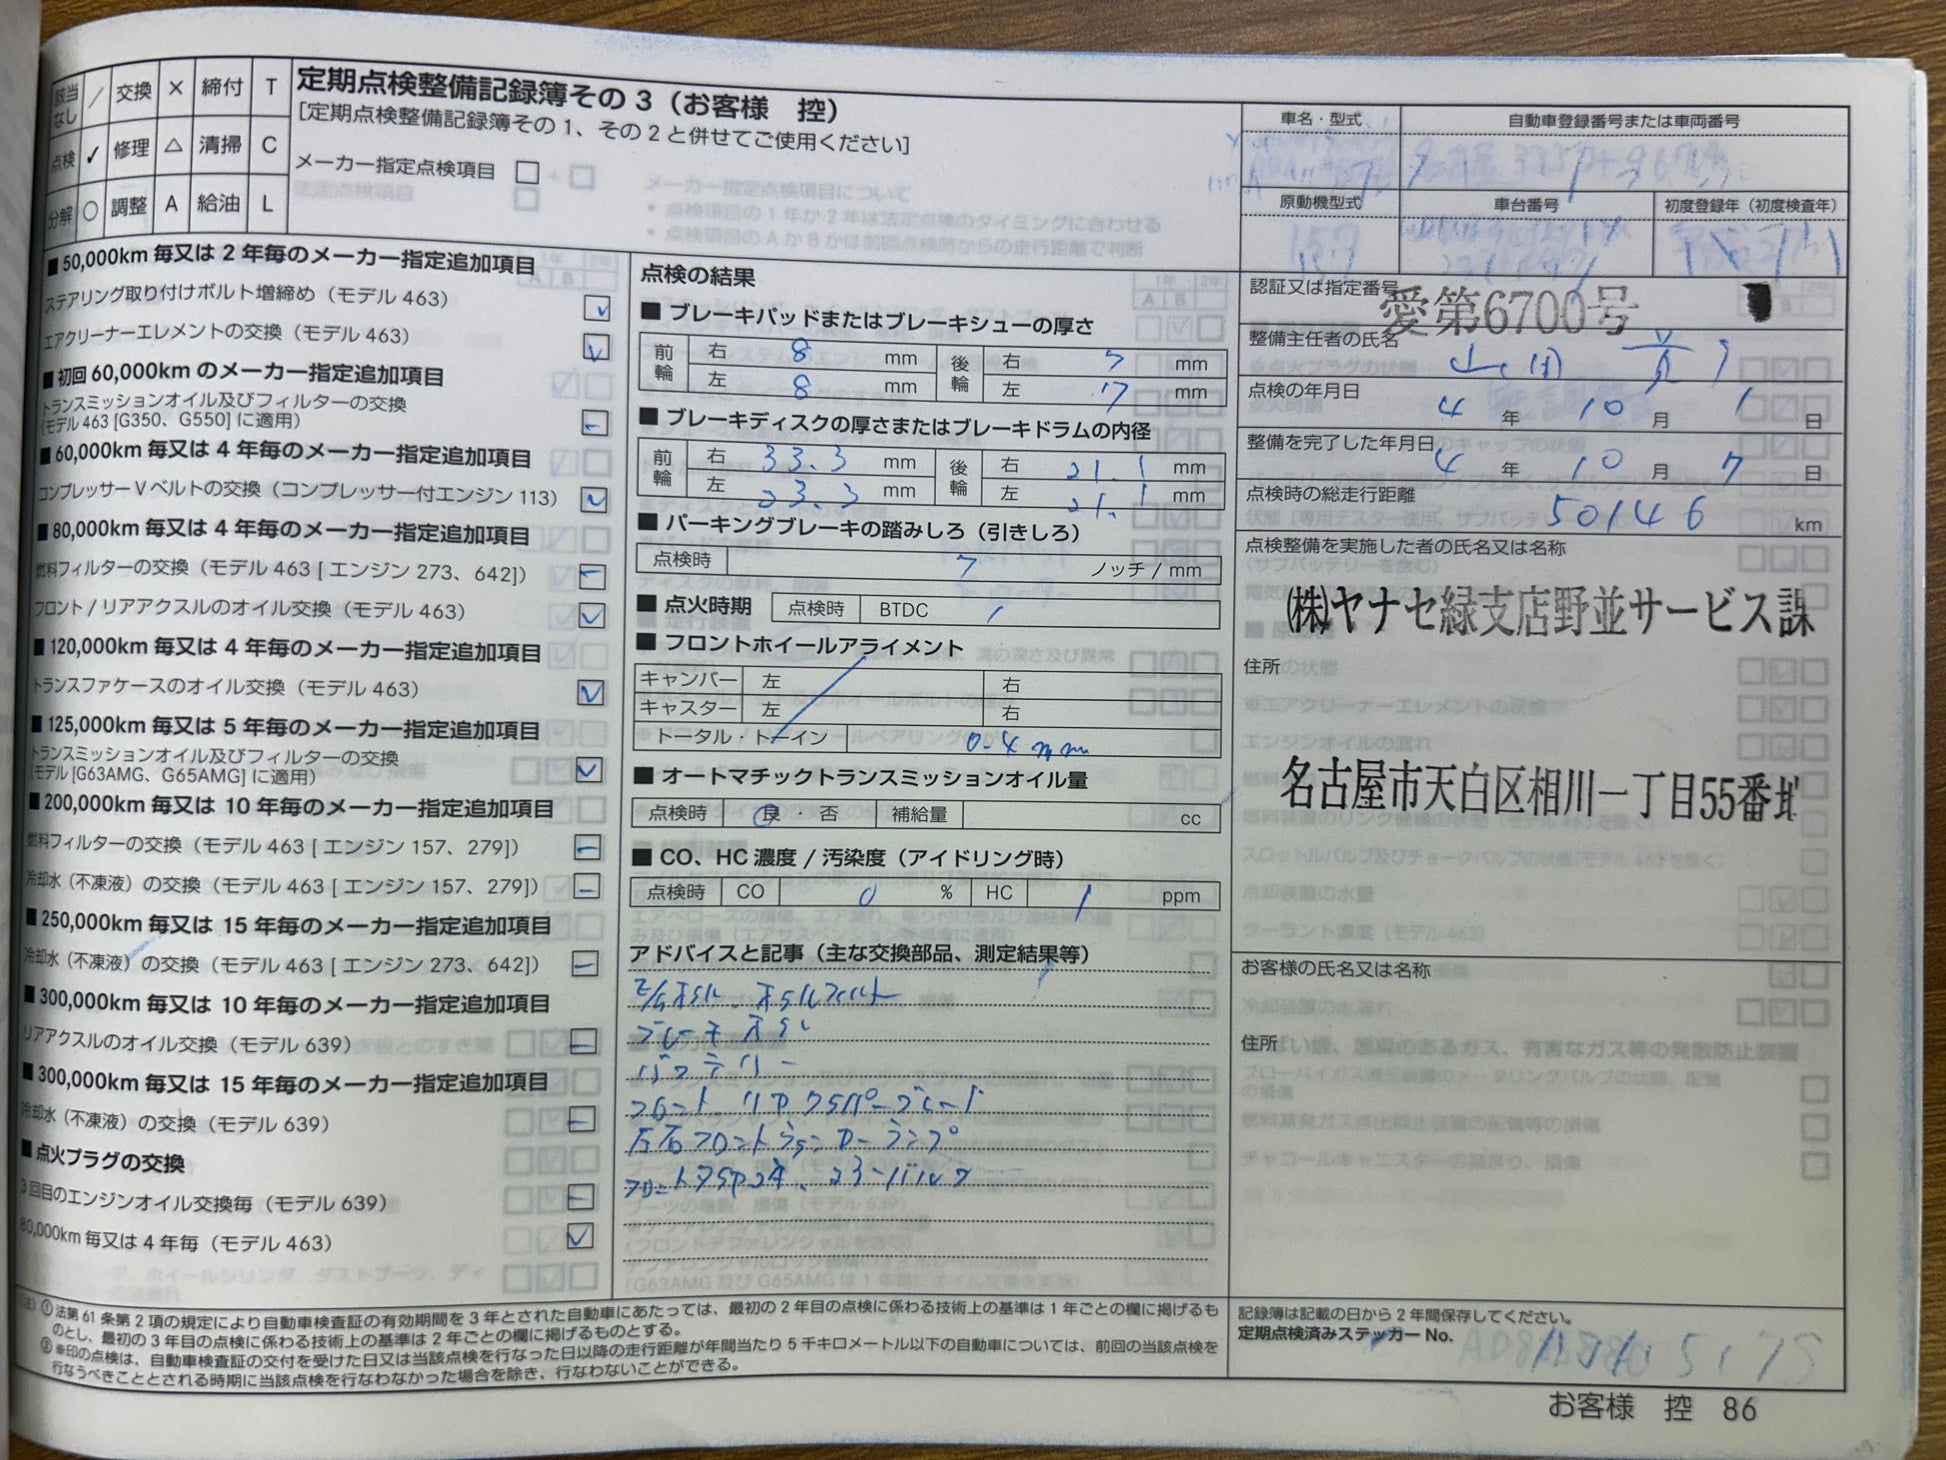 該当なし / 交換 × 締付 T
点検 ✓ 修理 △ 清掃 C
分解 ○ 調整 A 給油 L
定期点検整備記録簿その3（お客様 控）
[定期点検整備記録簿その1、その2と併せてご使用ください]
メーカー指定点検項目 □
■ 50,000km 毎又は 2 年毎のメーカー指定追加項目
ステアリング取り付けボルト増締め（モデル 463） ✓
エアクリーナーエレメントの交換（モデル 463） ✓
■ 初回 60,000km のメーカー指定追加項目
トランスミッションオイル及びフィルターの交換
(モデル 463 [G350、G550] に適用） −
■ 60,000km 毎又は 4 年毎のメーカー指定追加項目
コンプレッサー V ベルトの交換（コンプレッサー付エンジン 113） ✓
■ 80,000km 毎又は 4 年毎のメーカー指定追加項目
燃料フィルターの交換（モデル 463 [ エンジン 273、642]） −
フロント / リアアクスルのオイル交換（モデル 463） ✓
■ 120,000km 毎又は 4 年毎のメーカー指定追加項目
トランスファケースのオイル交換（モデル 463） ✓
■ 125,000km 毎又は 5 年毎のメーカー指定追加項目
トランスミッションオイル及びフィルターの交換
(モデル [G63AMG、G65AMG] に適用） ✓
■ 200,000km 毎又は 10 年毎のメーカー指定追加項目
燃料フィルターの交換（モデル 463 [ エンジン 157、279]） −
冷却水（不凍液）の交換（モデル 463 [ エンジン 157、279]） −
■ 250,000km 毎又は 15 年毎のメーカー指定追加項目
冷却水（不凍液）の交換（モデル 463 [ エンジン 273、642]） −
■ 300,000km 毎又は 10 年毎のメーカー指定追加項目
リアアクスルのオイル交換（モデル 639） −
■ 300,000km 毎又は 15 年毎のメーカー指定追加項目
冷却水（不凍液）の交換（モデル 639） −
■ 点火プラグの交換
3 回目のエンジンオイル交換毎（モデル 639） −
80,000km 毎又は 4 年毎（モデル 463） ✓
点検の結果
■ ブレーキパッドまたはブレーキシューの厚さ
前輪 右 8 mm 後輪 右 7 mm
左 8 mm 左 mm
■ ブレーキディスクの厚さまたはブレーキドラムの内径
前輪 右 33.3 mm 後輪 右 21.1 mm
左 mm 左 21.1 mm
■ パーキングブレーキの踏みしろ（引きしろ）
点検時 7 ノッチ / mm
■ 点火時期 点検時 BTDC /
■ フロントホイールアライメント
キャンバー 左 右
キャスター 左 右
トータル・トーイン 0-4 mm
■ オートマチックトランスミッションオイル量
点検時 良 ・ 否 補給量 cc
■ CO、HC 濃度 / 汚染度（アイドリング時）
点検時 CO 0 % HC 1 ppm
アドバイスと記事（主な交換部品、測定結果等）
オイルフィルター
ブレーキオイル
バッテリー
フロント リアワイパーブレード
左右フロント ランプ
フロント
車名・型式 自動車登録番号または車両番号
原動機型式 車台番号 初度登録年（初度検査年）
157
認証又は指定番号 愛第6700号
整備主任者の氏名 山田
点検の年月日
4 年 10 月 1 日
整備を完了した年月日
4 年 10 月 7 日
点検時の総走行距離
50146 km
点検整備を実施した者の氏名又は名称
㈱ヤナセ緑支店野並サービス課
住所
名古屋市天白区相川一丁目55番地
お客様の氏名又は名称
住所
(注) ① 法第 61 条第 2 項の規定により自動車検査証の有効期間を 3 年とされた自動車にあたっては、最初の 2 年目の点検に係わる技術上の基準は 1 年ごとの欄に掲げるも
のとし、最初の 3 年目の点検に係わる技術上の基準は 2 年ごとの欄に掲げるものとする。
② ※印の点検は、自動車検査証の交付を受けた日又は当該点検を行なった日以降の走行距離が年間当たり 5 千キロメートル以下の自動車については、前回の当該点検を
行なうべきこととされる時期に当該点検を行なわなかった場合を除き、行なわないことができる。
記録簿は記載の日から 2 年間保存してください。
定期点検済みステッカー No.
お客様 控 86